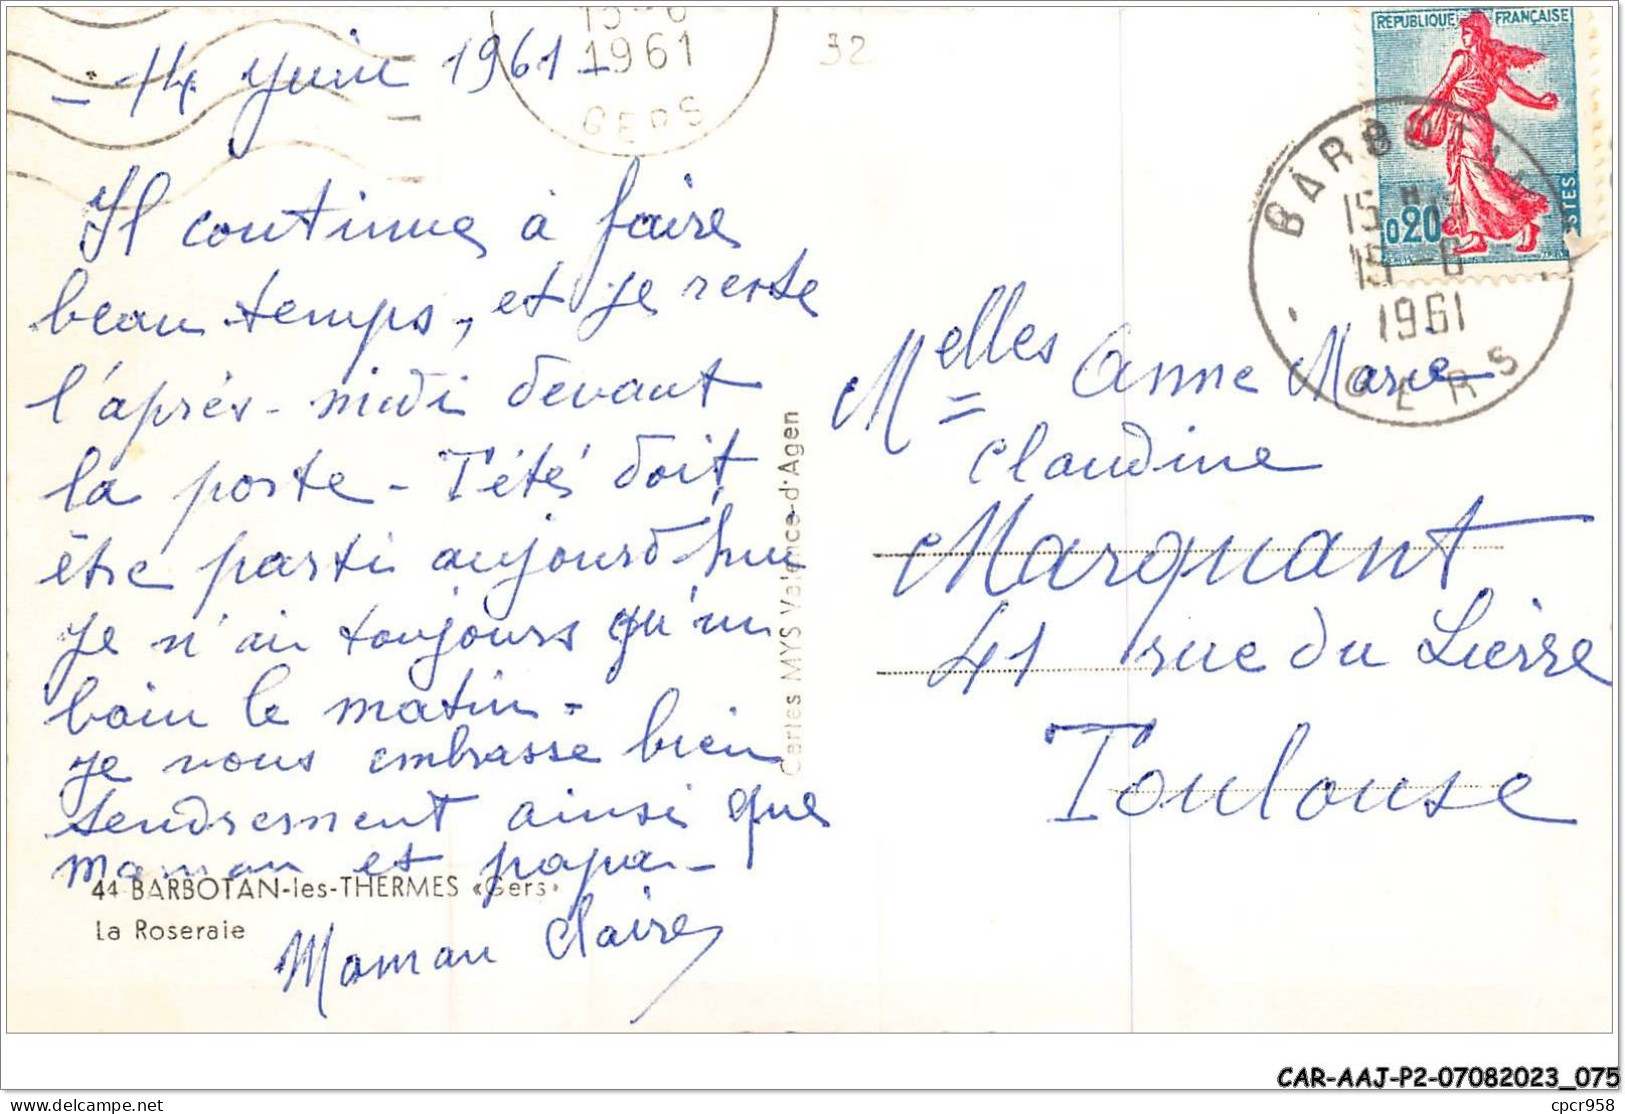 - 14 Juin 1961 -
15-6
1961
GERS
32
Il continue à faire
beau temps, et je reste
l'après-midi devant
la poste - Tété doit
être parti aujourd'hui
Je n'ai toujours qu'un
bain le matin -
je vous embrasse bien
tendrement ainsi que
maman et papa -
Maman Claire
44 BARBOTAN-les-THERMES «Gers»
La Roseraie
Cartes MYS Valence-d'Agen
REPUBLIQUE FRANÇAISE
0,20
POSTES
BARBOTAN
15 H
15 - 6
1961
GERS
Melles Anne Marie
Claudine
Marquant
41 rue du Lierre
Toulouse
CAR-AAJ-P2-07082023_075
delcampe.net
cpcr958